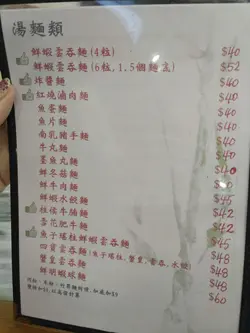 湯麵類
鮮蝦雲吞麵(4粒) $40
鮮蝦雲吞麵(6粒, 1.5個麵底) $52
炸醬麵 $40
紅燒滷肉麵 $40
魚蛋麵 $40
魚片麵 $40
南乳豬手麵 $40
牛丸麵 $40
墨魚丸麵 $40
鮮冬菇麵 $40
鮮牛肉麵 $40
鮮蝦水餃麵 $45
柱侯牛腩麵 $42
雪花肥牛麵 $42
魚子瑤柱鮮蝦雲吞麵 $45
四寶雲吞麵(魚子瑤柱, 蟹皇, 雲吞, 水餃) $48
蟹皇雲吞麵 $48
鮮明蝦球麵 $48
$60